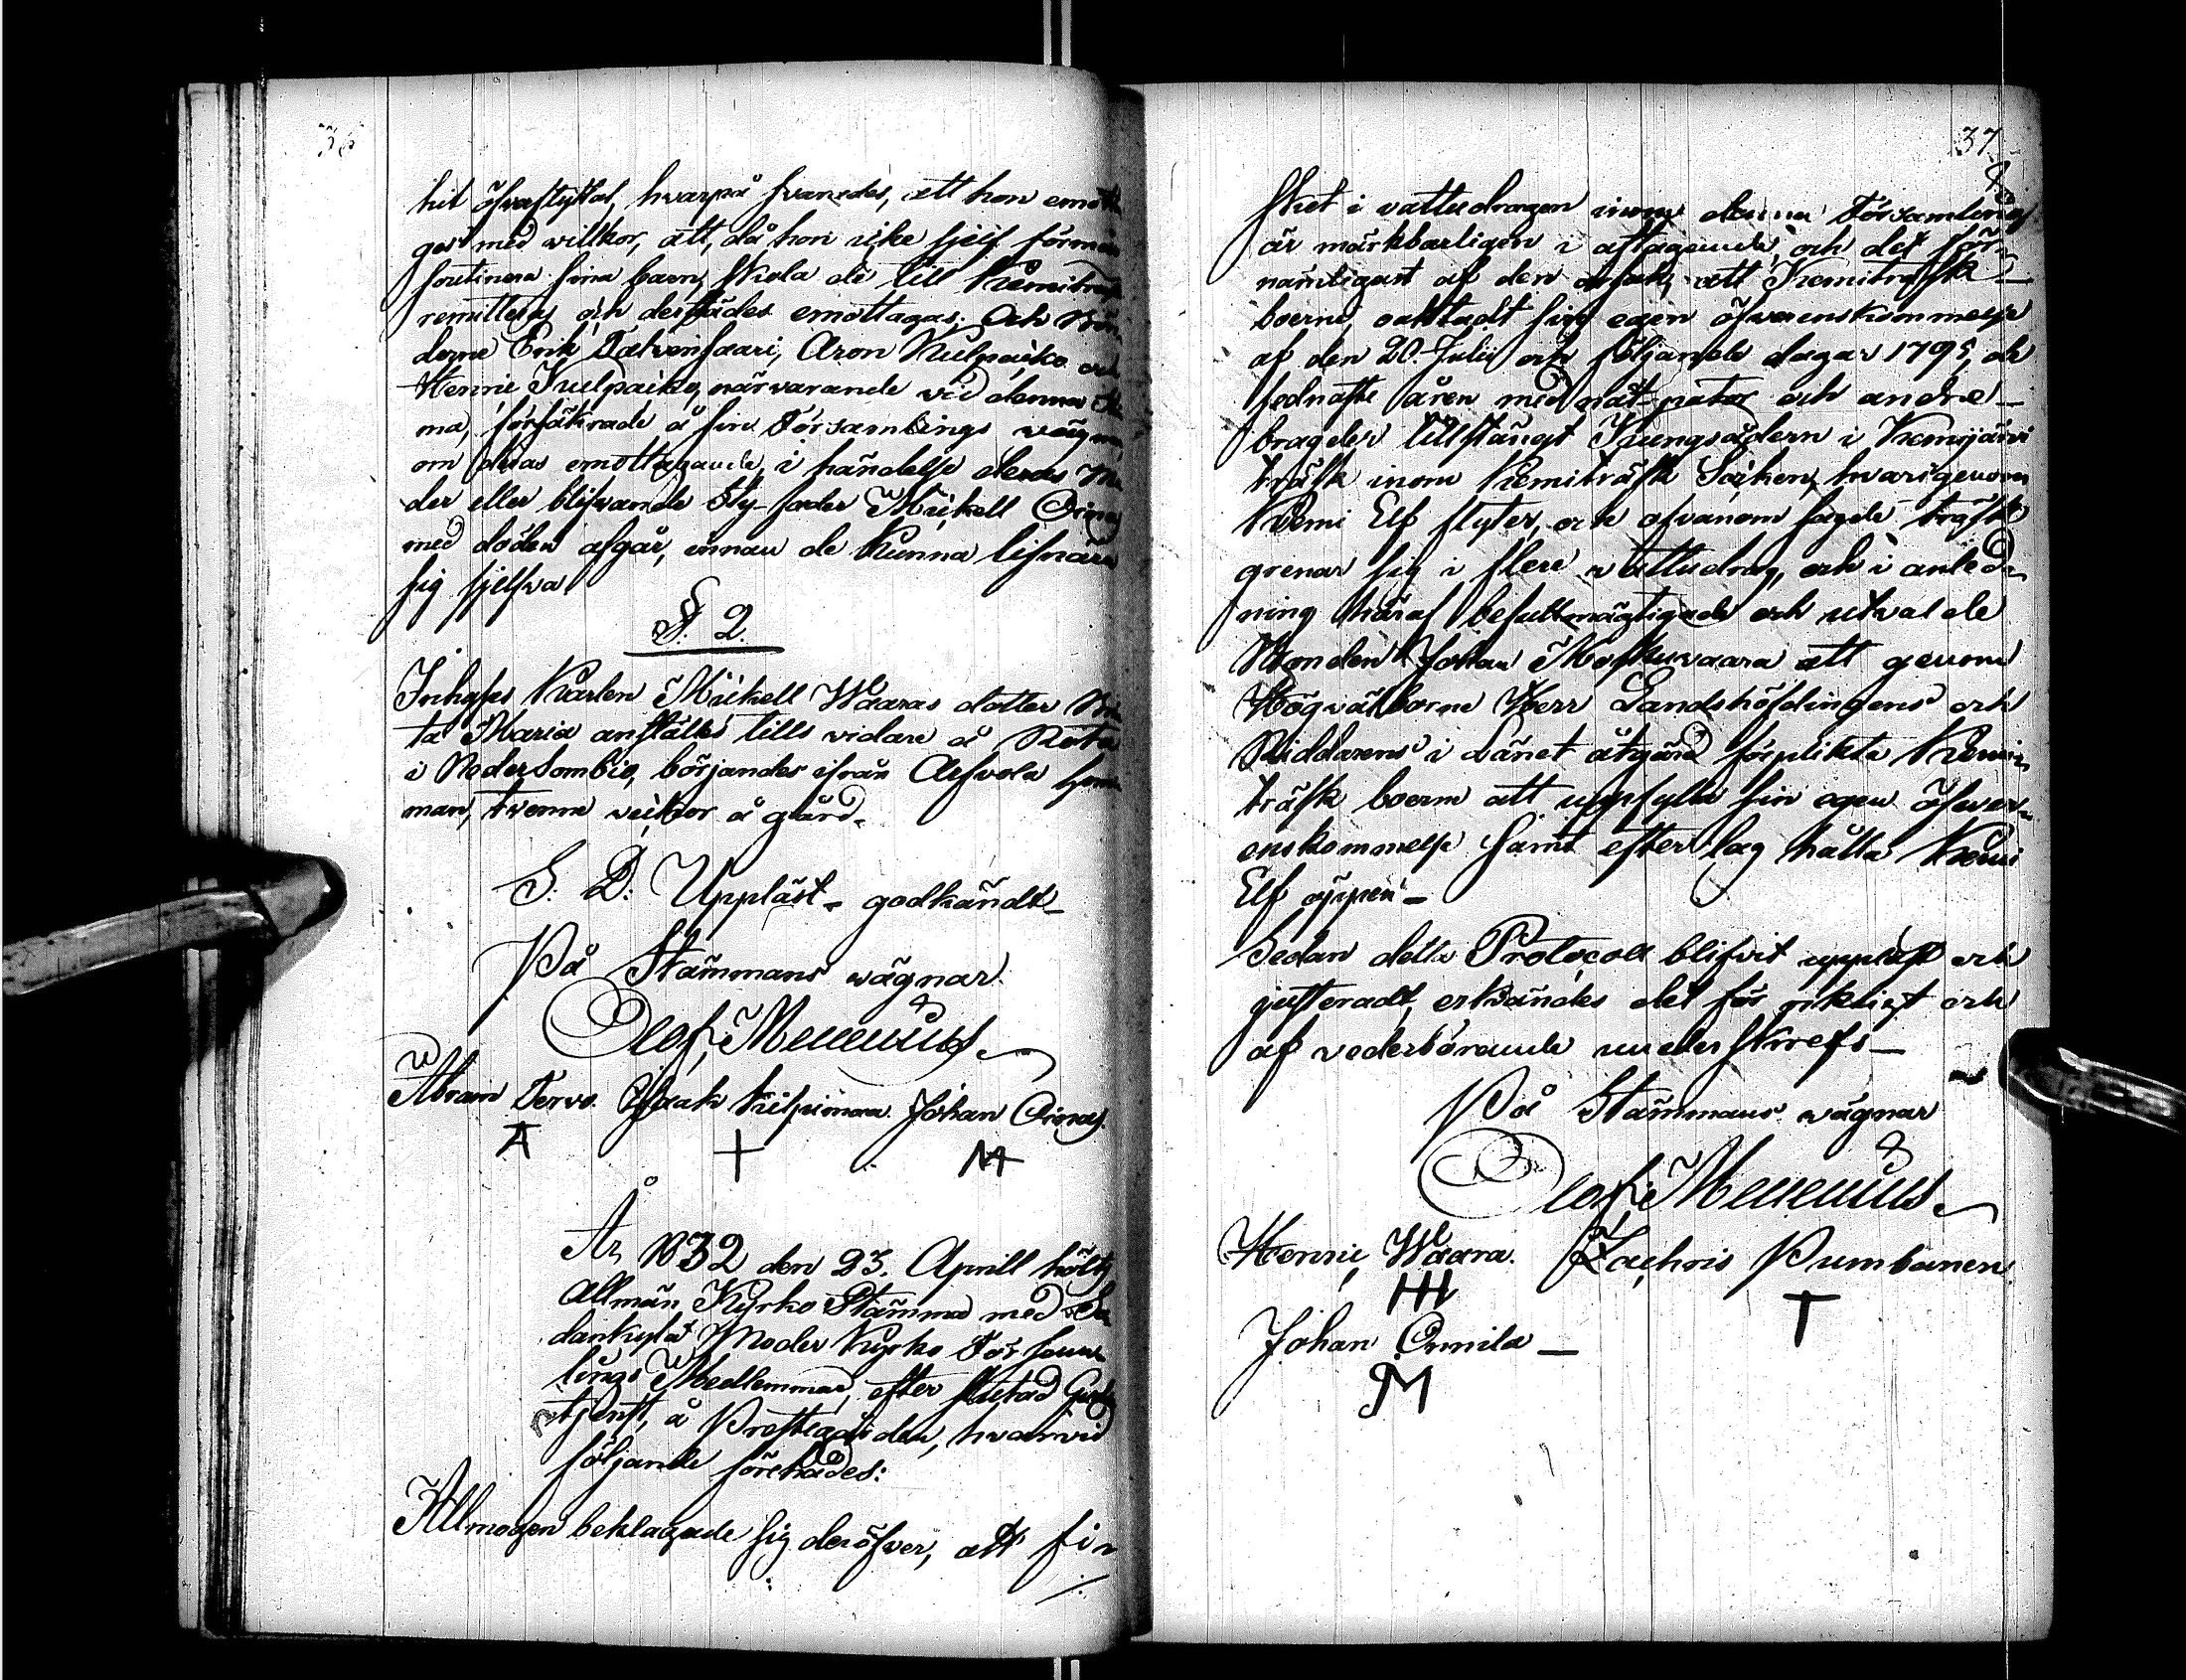 36
hit öfverflyttat, hvarpå svarades, att hon emotta
ges med willkor, att, då hon icke sjelf förmår
soutinera sina barn, skola de till Kemiträsk
remitteras och derstädes emottagas; Och Bön,
derne Erik Talvensaari, Aron Kulpaiko och
Henric Kulpaiko, närvarande vid denna Stä
ma, försäkrade å sin Församlings wägnar,
om deras emottagande, i händelse deras Mo
der eller blifvande Sty-fader Mickell Oinas
med döden afgår, innan de kunna lifnära
sig sjelfva
§. 2.
Inhyses Karlen Mickell Waaras dotter Bri
ta Maria anställes tills vidare å Rota
i NederSombio, börjandes ifrån Arfvola hem
man, tvenne veckor å gård.
S. D: Uppläst - godkändt -
På Stämmans wägnar
Olof Menenius
Abram Tervo. Isaak Kilpimaa Johan Oinas.
A + M
År 1832 den 23. Aprill hölts
Allmän Kyrko Stämma med So
dankylä Moder Kyrko Försam
lings Medlemmar, efter slutad Guds
tjenst, å Prestgården, hvarvid
följande förehades:
Allmogen beklagade sig deröfver, att fi
37
sket i vattudragen inom denna Församling
är märkbarligen i aftagande, och det för-
nämligast af den orsak, att Kemiträsk
boerne, oaktadt sin egen öfverenskommelse
af den 20. Julii och följande dagar 1795, de
sednaste åren med nät-pator och andra
bragder tillstängt Kungsådern i Kemijärvi
träsk inom Kemiträsk Socken, hvarigenom
Kemi Elf flyter, och ofvanom sagde träsk
grenar sig i flere vattudrag, och i anled-
ning häraf befullmägtigade och utvalde
Bonden Johan Moskuvaara att genom
Högvälborne Herr Landshöfdingens och
Riddarens i länet åtgärd förplikta Kemi-
träsk boerne att uppfylla sin egen öfver-
enskommelse samt efter lag hålla Kemi
Elf öppen -
Sedan detta Protocoll blifvit uppläst och
justeradt, erkändes det för riktigt och
af vederbörande underskrefs -
På Stämmans wägnar
Olof Menenius
Henric Waara. Zachris Pumbanen
HH T
Johan Onnila -
M